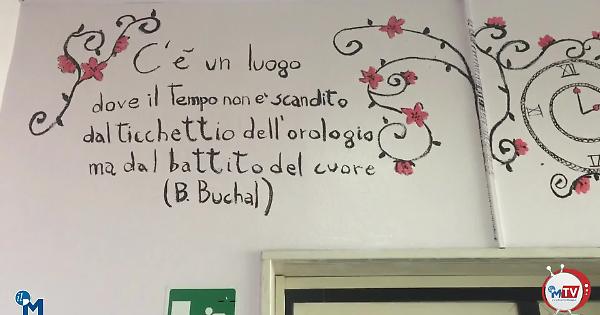 C'è un luogo
dove il Tempo non e' scandito
dal ticchettio dell'orologio
ma dal battito del cuore
(B. Buchal)
XII
IX
il M
MTV